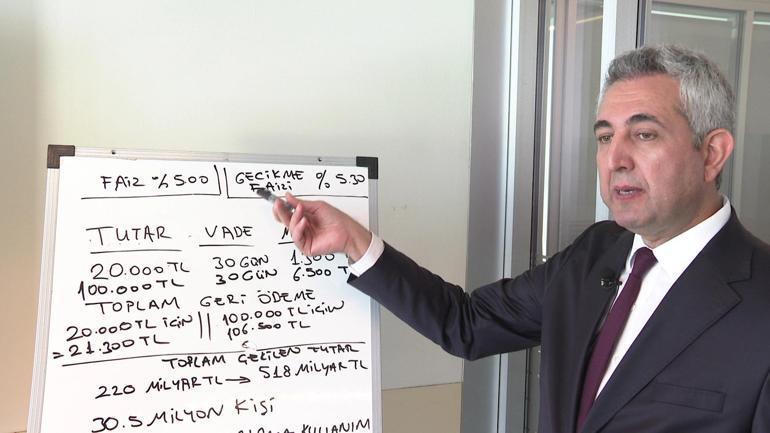 FAİZ %500
GECİKME FAİZİ % 5.30
TUTAR VADE
20.000 TL 30 GÜN 1.300
100.000 TL 30 GÜN 6.500 TL
TOPLAM GERİ ÖDEME
20.000 TL İÇİN || 100.000 TL İÇİN
= 21.300 TL 106.500 TL
TOPLAM ÇEKİLEN TUTAR
220 MİLYAR TL → 518 MİLYAR TL
30.5 MİLYON KİŞİ
KULLANIM